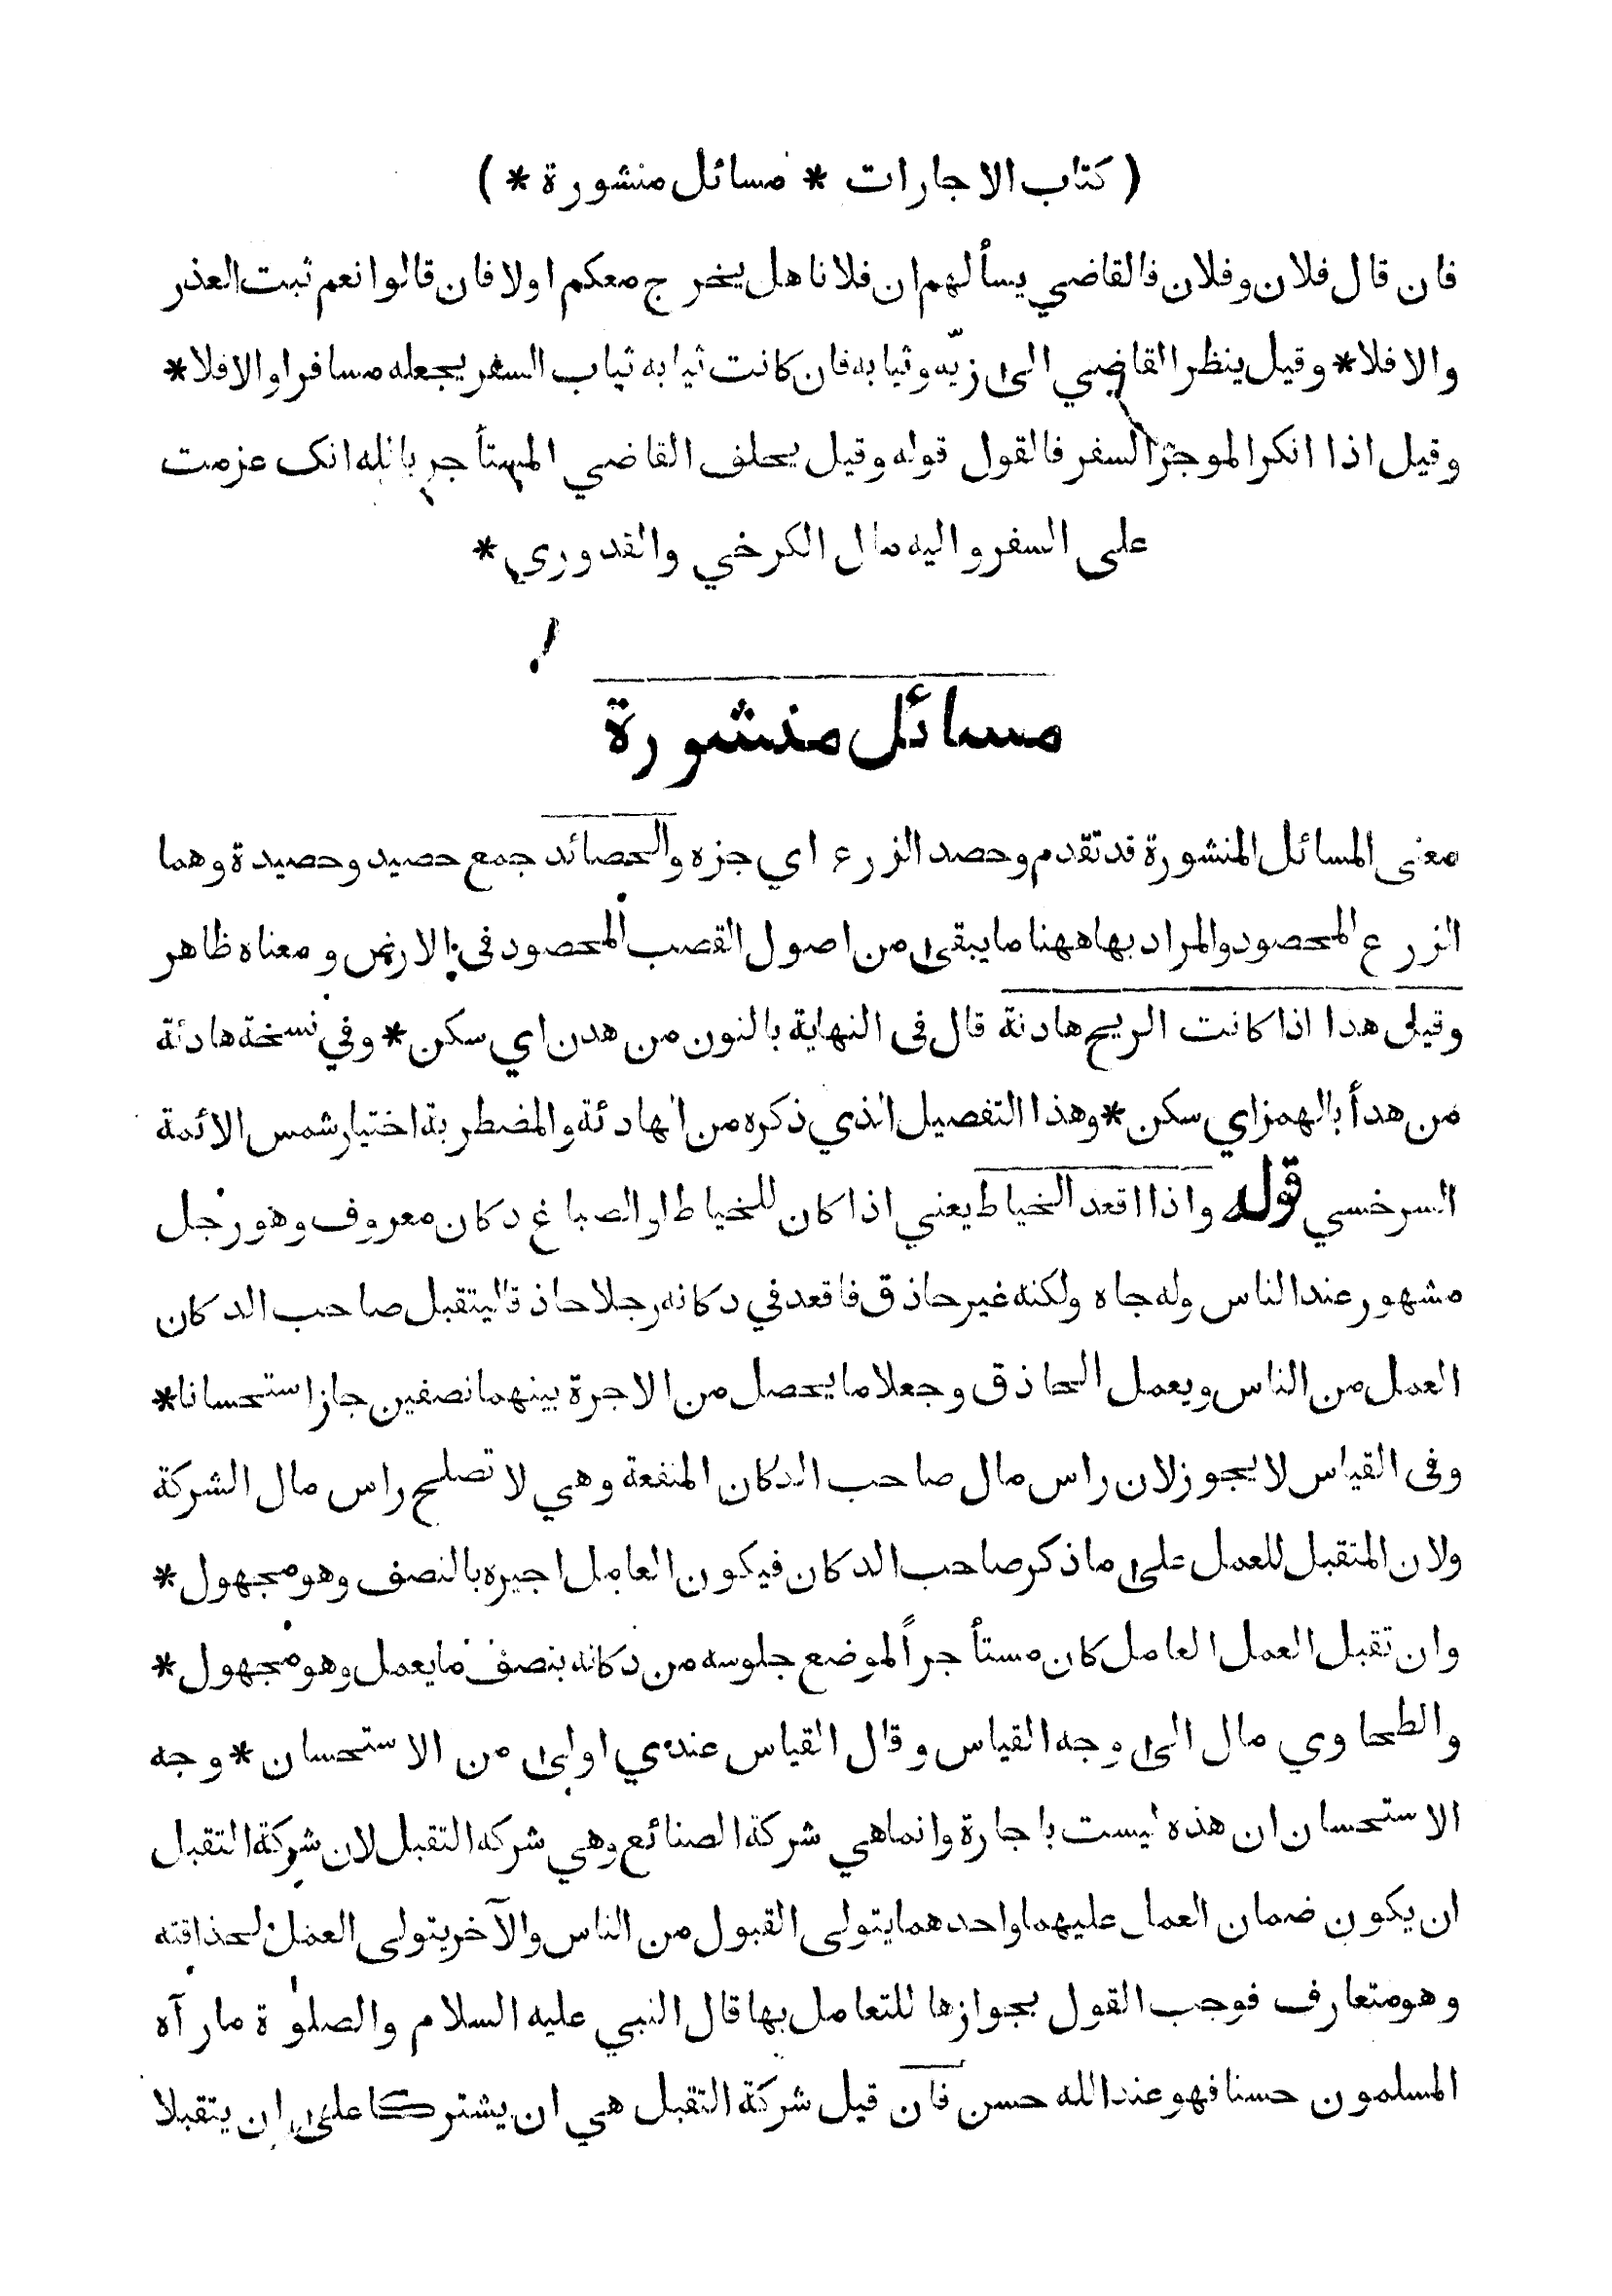 ( كتاب الاجارات * مسائل منشورة * )
فان قال فلان وفلان فالقاضي يسألهم ان فلانا هل يخرج معكم اولا فان قالوا نعم ثبت العذر
والا فلا * وقيل ينظر القاضي الى زيّه وثيابه فان كانت ثيابه ثياب السفر يجعله مسافرا والا فلا *
وقيل اذا انكر الموجر السفر فالقول قوله وقيل يحلف القاضي المستأجر بالله انك عزمت
على السفر واليه مال الكرخي والقدوري *
مسائل منشورة
معنى المسائل المنشورة قد تقدم وحصد الزرع اي جزه والحصائد جمع حصيد وحصيدة وهما
الزرع المحصود والمراد بها ههنا ما يبقى من اصول القصب المحصود في الارض ومعناه ظاهر
وقيل هذا اذا كانت الريح هادنة قال في النهاية بالنون من هدن اي سكن * وفي نسخة هادئة
من هدأ بالهمز اي سكن * وهذا التفصيل الذي ذكره من الهادئة والمضطربة اختيار شمس الائمة
السرخسي قوله واذا اقعد الخياط يعني اذا كان للخياط او الصباغ دكان معروف وهو رجل
مشهور عند الناس وله جاه ولكنه غير حاذق فاقعد في دكانه رجلا حاذقا ليتقبل صاحب الدكان
العمل من الناس ويعمل الحاذق وجعلا ما يحصل من الاجرة بينهما نصفين جاز استحسانا *
وفي القياس لا يجوز لان راس مال صاحب الدكان المنفعة وهي لا تصلح راس مال الشركة
ولان المتقبل للعمل على ما ذكر صاحب الدكان فيكون العامل اجيره بالنصف وهو مجهول *
وان تقبل العمل العامل كان مستأجراً لموضع جلوسه من دكانه بنصف ما يعمل وهو مجهول *
والطحاوي مال الى وجه القياس وقال القياس عندي اولى من الاستحسان * وجه
الاستحسان ان هذه ليست باجارة وانما هي شركة الصنائع وهي شركه التقبل لان شركة التقبل
ان يكون ضمان العمل عليهما واحدهما يتولى القبول من الناس والآخر يتولى العمل لحذاقته
وهو متعارف فوجب القول بجوازها للتعامل بها قال النبي عليه السلام والصلوة ما رآه
المسلمون حسنا فهو عند الله حسن فان قيل شركة التقبل هي ان يشتركا على ان يتقبلا